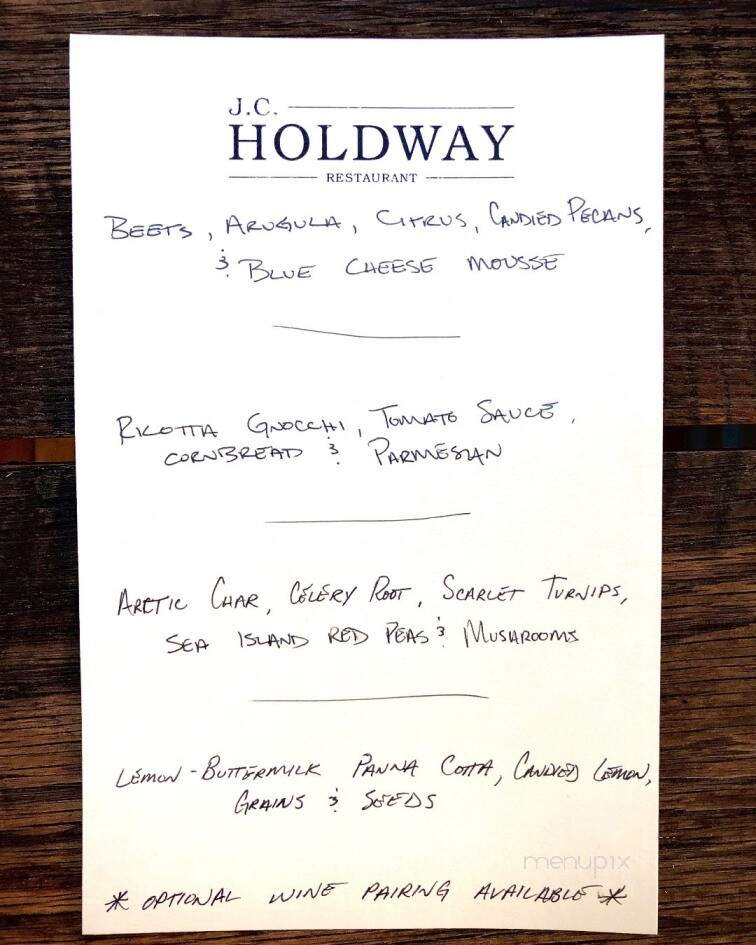 J.C.
HOLDWAY
RESTAURANT
BEETS, ARUGULA, CITRUS, CANDIED PECANS,
& BLUE CHEESE MOUSSE
RICOTTA GNOCCHI, TOMATO SAUCE,
CORNBREAD & PARMESAN
ARCTIC CHAR, CELERY ROOT, SCARLET TURNIPS,
SEA ISLAND RED PEAS & MUSHROOMS
LEMON-BUTTERMILK PANNA COTTA, CANDIED LEMON,
GRAINS & SEEDS
menupix
* OPTIONAL WINE PAIRING AVAILABLE *